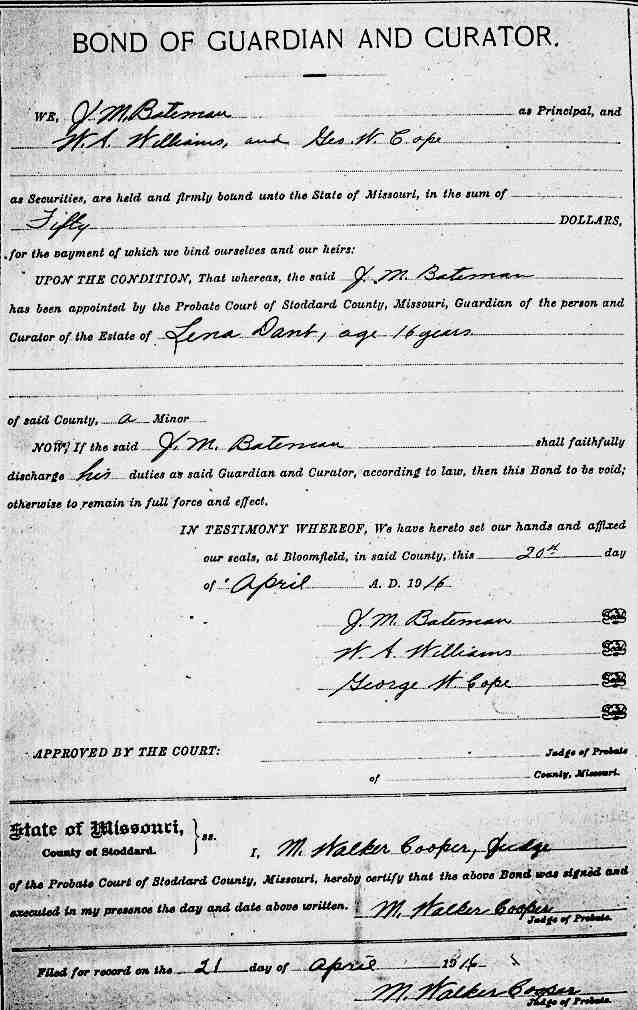 BOND OF GUARDIAN AND CURATOR.
WE, J. M. Bateman as Principal, and
W. A. Williams, and Geo. W. Cope
as Securities, are held and firmly bound unto the State of Missouri, in the sum of
Fifty DOLLARS,
for the payment of which we bind ourselves and our heirs:
UPON THE CONDITION, That whereas, the said J. M. Bateman
has been appointed by the Probate Court of Stoddard County, Missouri, Guardian of the person and
Curator of the Estate of Lena Dant, age 16 years
of said County, a Minor
NOW, If the said J. M. Bateman shall faithfully
discharge his duties as said Guardian and Curator, according to law, then this Bond to be void;
otherwise to remain in full force and effect.
IN TESTIMONY WHEREOF, We have hereto set our hands and affixed
our seals, at Bloomfield, in said County, this 20th day
of April A. D. 1916
J. M. Bateman Seal
W. A. Williams Seal
George W. Cope Seal
Seal
APPROVED BY THE COURT: Judge of Probate
of County, Missouri.
State of Missouri,
County of Stoddard. } ss.
I, M. Walker Cooper, Judge
of the Probate Court of Stoddard County, Missouri, hereby certify that the above Bond was signed and
executed in my presence the day and date above written. M. Walker Cooper
Judge of Probate.
Filed for record on the 21 day of April 1916
M. Walker Cooper
Judge of Probate.